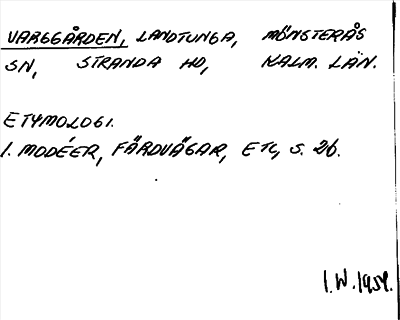 VARGGÅRDEN, LANDTUNGA, MÖNSTERÅS
SN, STRANDA HD, KALM. LÄN.
ETYMOLOGI.
I. MODÉER, FÄRDVÄGAR, ETC, S. 26.
I.W. 1954.